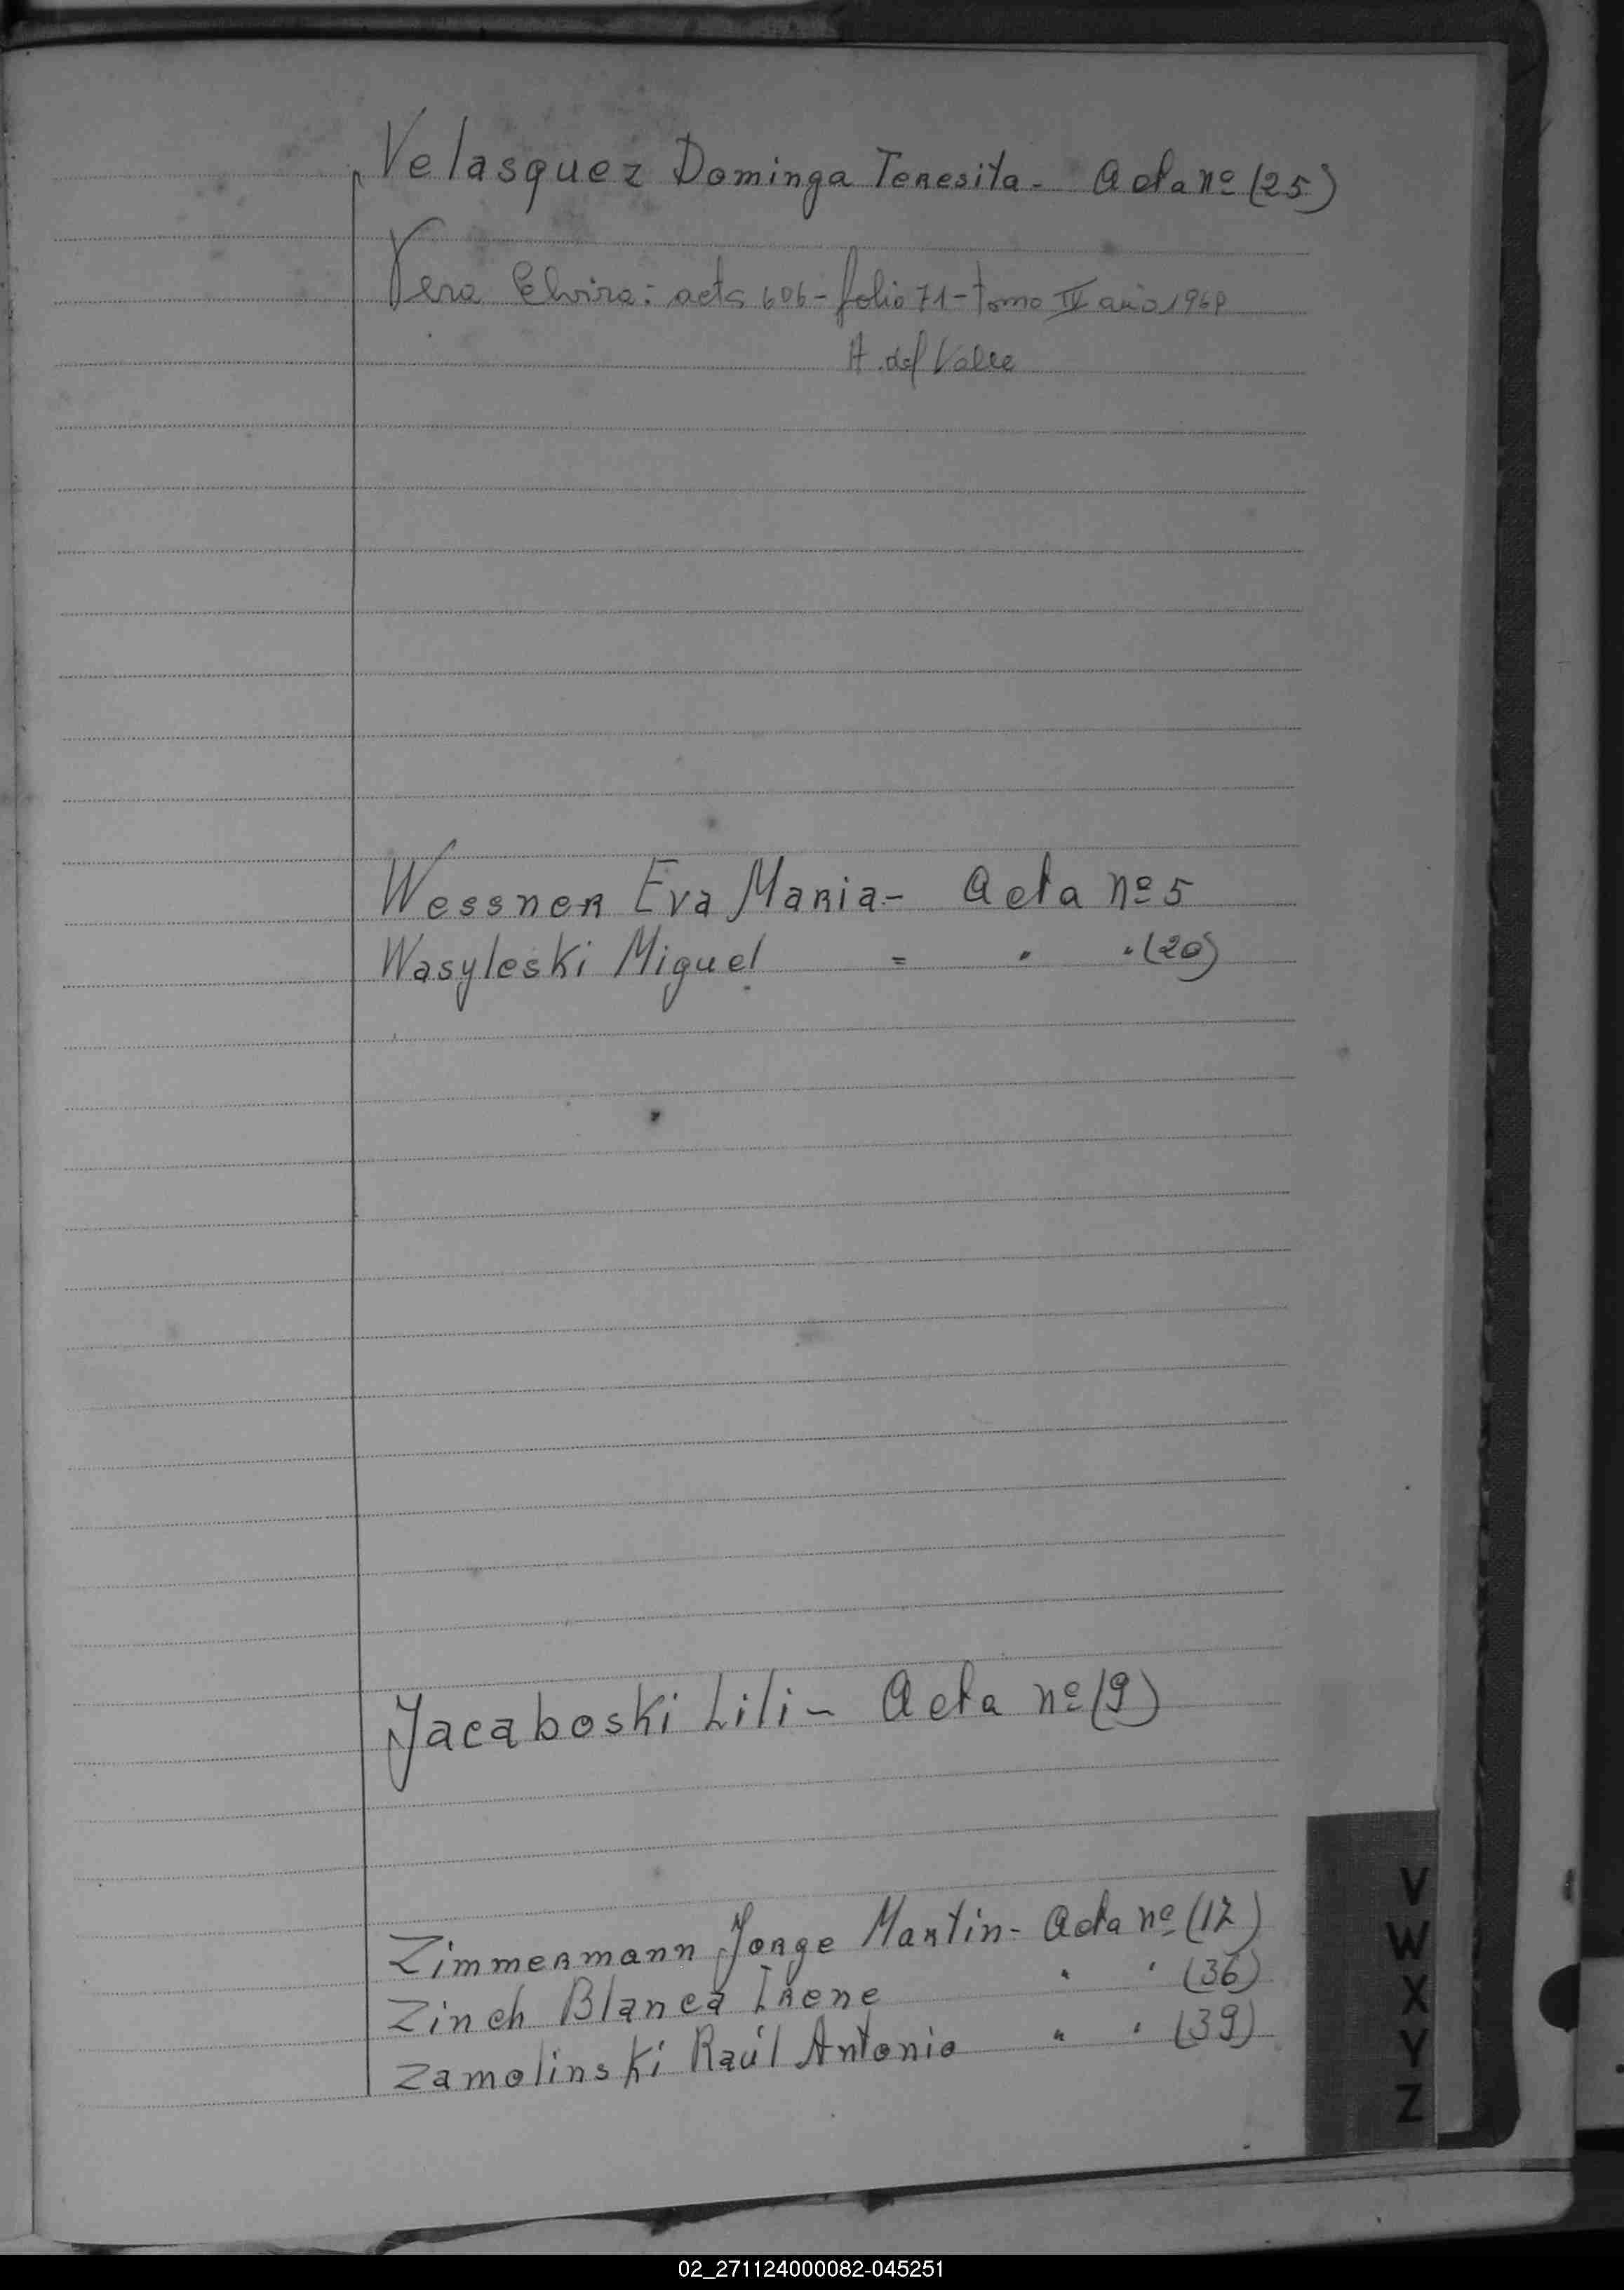 Velasquez Dominga Teresita - Acta nº (25)
Vera Elvira: acta 606 - folio 71 - tomo IV año 1968
A. del Valle
Wessner Eva Maria - Acta nº 5
Wasyleski Miguel = " " (20)
Yacaboski Lili - Acta nº (9)
Zimmermann Jorge Martin - Acta nº (12)
Zinch Blanca Irene " " (36)
Zamolinski Raúl Antonio " " (39)
V
W
X
Y
Z
02_271124000082-045251